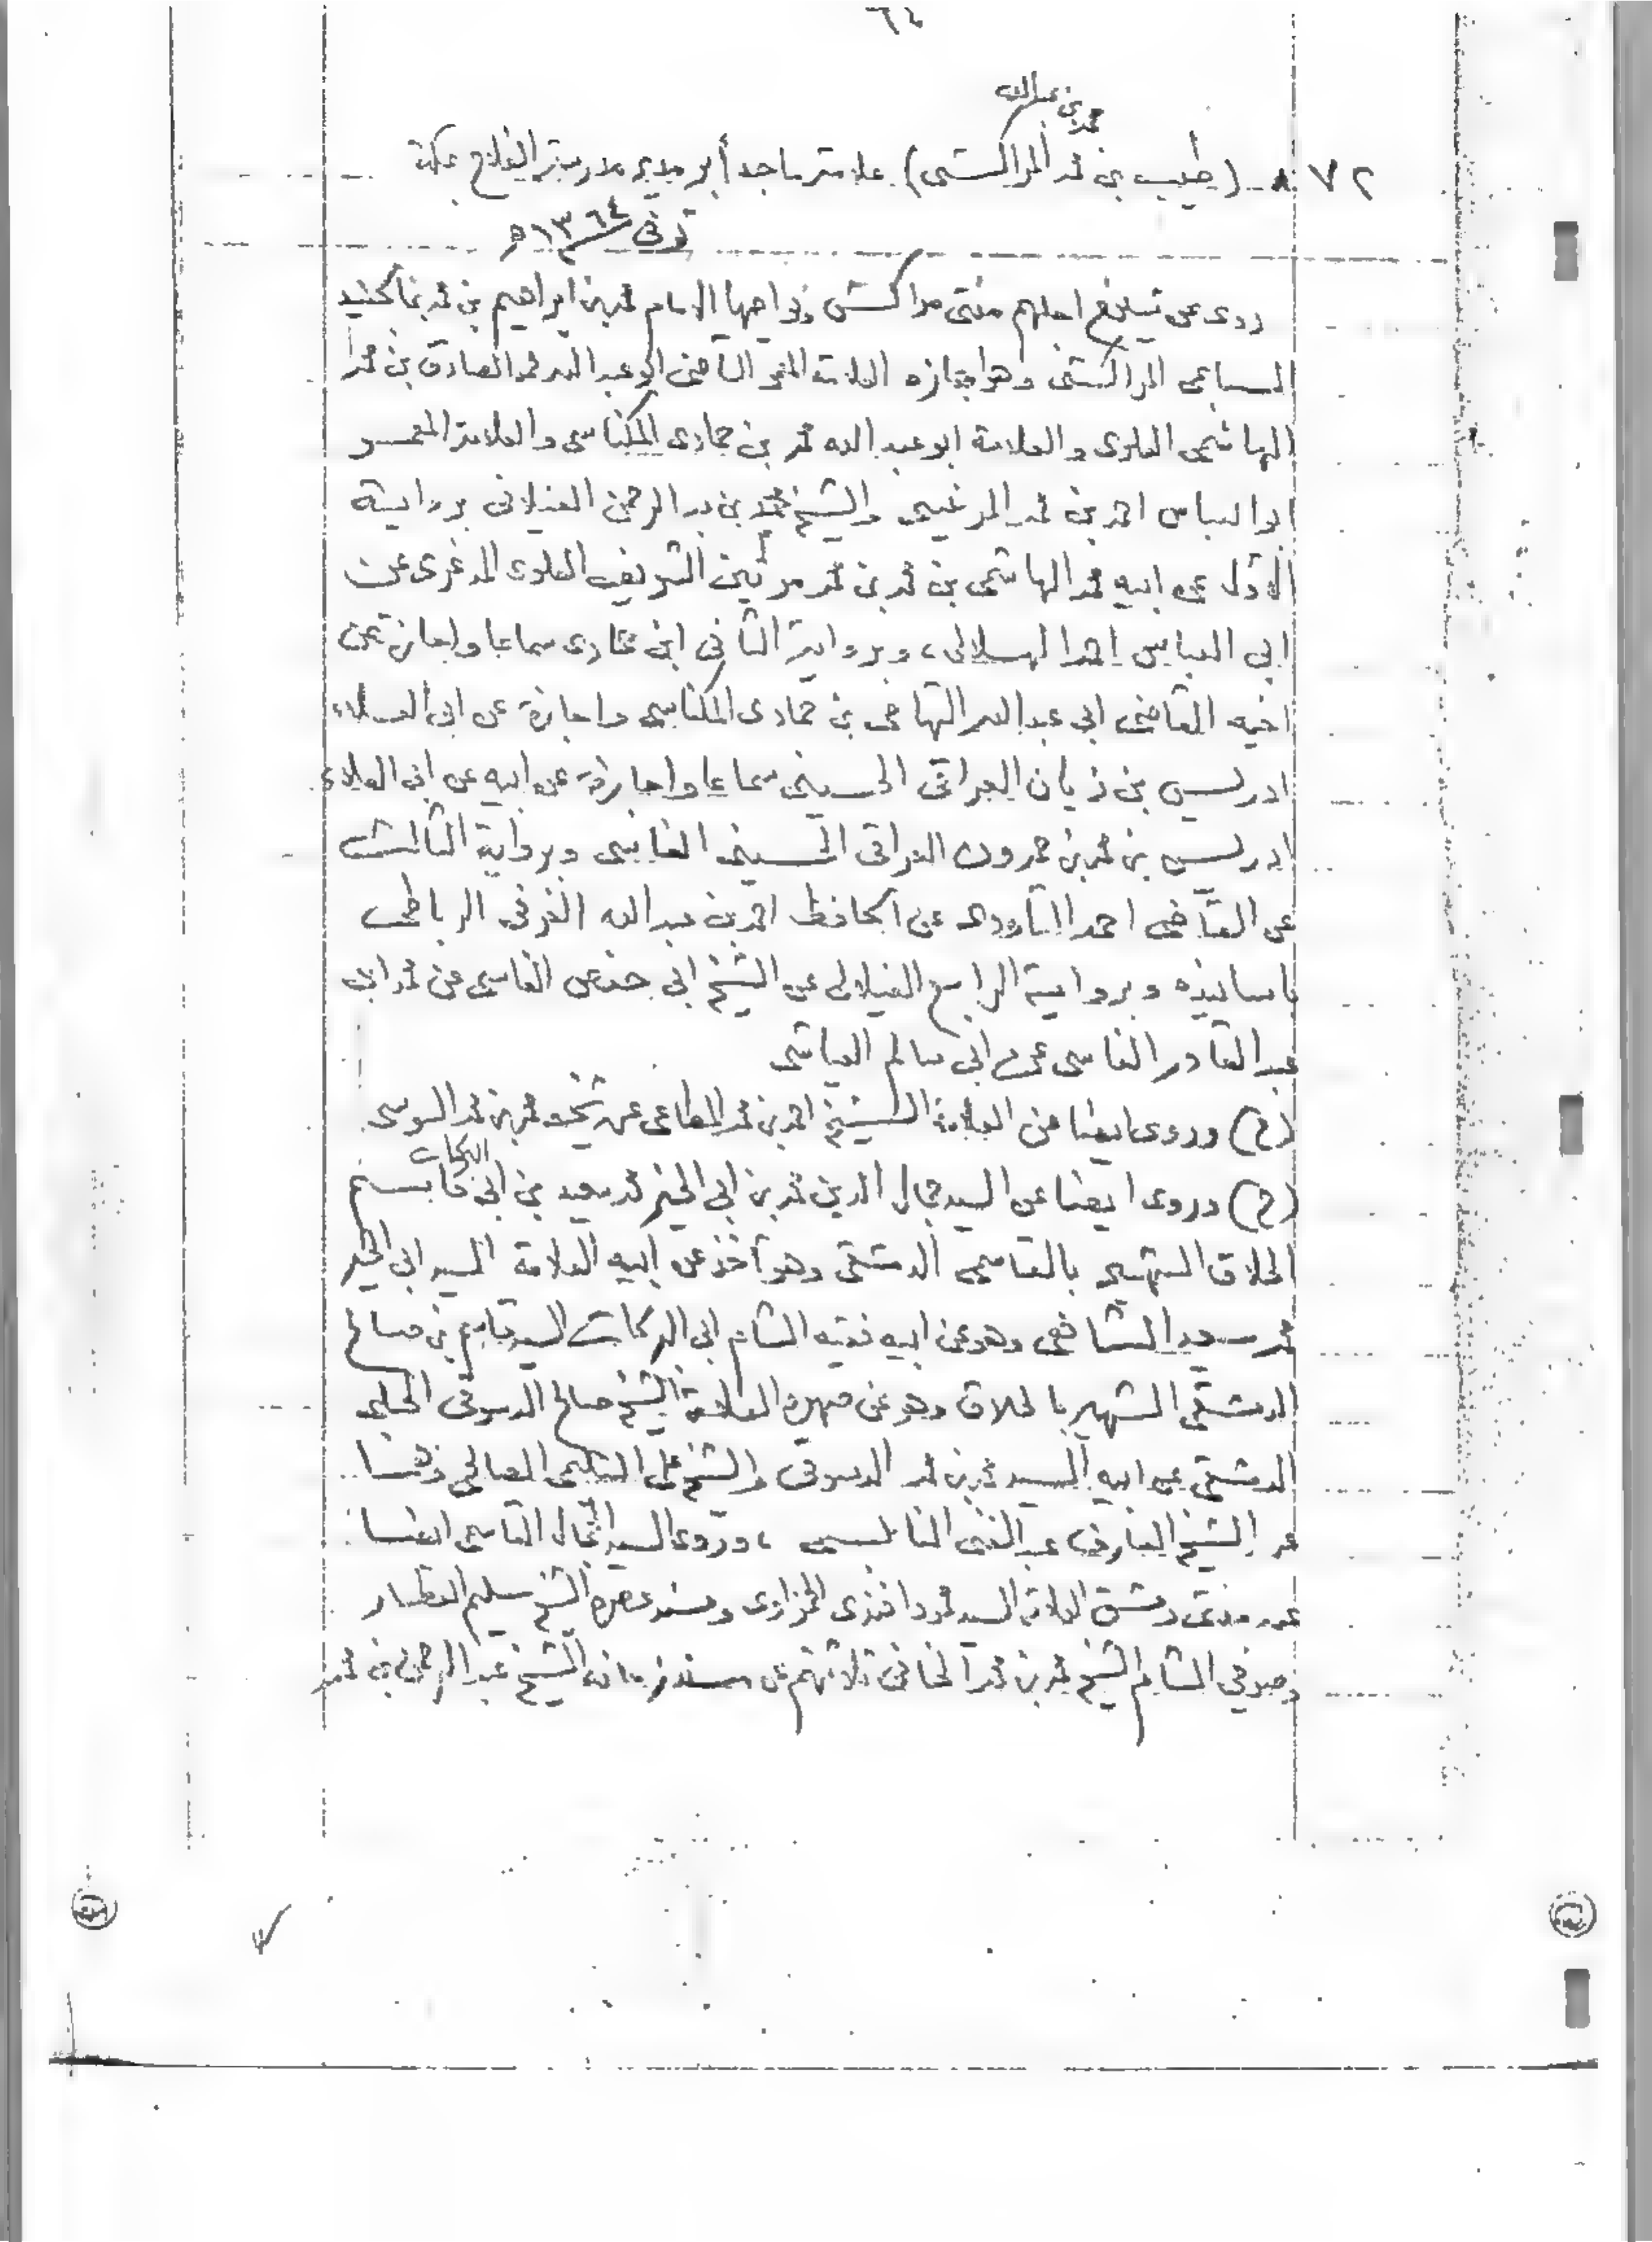 ٦٤
محمد بن عبدالله
٧٢ (طيب بن محمد المراكشى) علامة ماجد أبر مدير مدرسة الفلاح بمكة
توفى ١٣٦٤ هـ
روى عن اجلهم مفتى مراكش ونواحيها الامام محمد بن ابراهيم بن محمد
السباعى المراكشى وهو اجازه العلامة القاضى ابو عبد الله محمد الصادق بن محمد
الهاشمى العلوى والعلامة ابو عبد الله محمد بن حمادى المكناسى والعلامة المعمر
ابو العباس احمد بن محمد المرغيبى والشيخ محمد بن عبد الرحمن الفيلالى برواية
الأول عن ابيه محمد الهاشمى بن محمد بن محمد الشريف العلوى المدغرى عن
ابى العباس احمد الهلالى، وبرواية الثانى ابن حمادى سماعا واجازة عن
اخيه القاضى ابى عبد الله التهامى بن حمادى المكناسى واجازة عن ابى العلاء
ادريس بن زيان العراقى الحسينى سماعا واجازة عن ابيه عن ابى العلاء
ادريس بن محمد بن حمدون العراقى الحسينى الفاسى وبرواية الثالث
عن القاضى احمد التاودى عن الحافظ احمد بن عبد الله الغربى الرباطى
باسانيده وبرواية الرابع الفيلالى عن الشيخ ابى حفص الفاسى عن محمد ابن
عبد القادر الفاسى عن ابى سالم العياشى
(ح) وروى ايضا عن العلامة الشيخ احمد بن محمد عن شيخه محمد بن محمد السوسى
البركات
(ح) وروى ايضا عن السيد جمال الدين محمد بن ابى الخير محمد سعيد بن ابى قاسم
الحلاق الشهير بالقاسمى الدمشقى وهو أخذ عن ابيه العلامة السيد ابى الخير
محمد سعيد الشافعى وهو عن ابيه فقيه الشام ابى البركات السيد قاسم بن صالح
الدمشقى الشهير بالحلاق وهو عن صهره العلامة الشيخ صالح الدسوقى الحسينى
الدمشقى عن ابيه السيد محمد بن محمد الدسوقى والشيخ على السليمى الصالحى وهما
عن الشيخ العارف عبد الغنى النابلسى، وروى السيد الجمال القاسمى ايضا
عن مفتى دمشق العلامة السيد محمود افندى الحمزاوى ومسند عصره الشيخ سليم العطار
وصوفى الشام الشيخ محمد بن محمد الخانى ثلاثتهم عن مسند زمانه الشيخ عبد الرحمن بن محمد